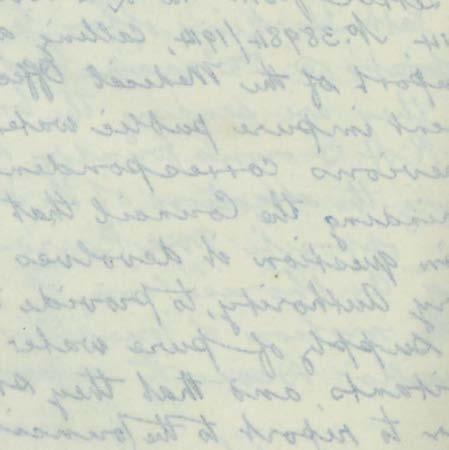 14 No. 38984/1914, Calling a
eport of the Medical Offi
ent impure public wate
evious corresponden
inding the Council that
in question it devolves
ry Authority, to provide
supply of pure wate
itants and that they
to report to the Counci